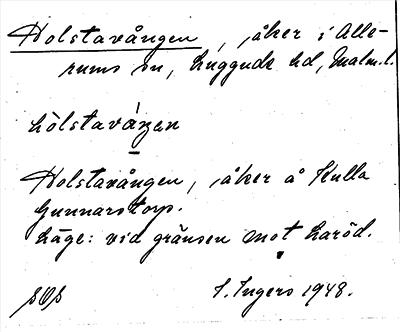 Holstavången, åker i Alle-
rums sn, Luggude hd, Malm. l.
hòlstavàŋen
Holstavången, åker å Kulla
Gunnarstorp.
Läge: vid gränsen mot Laröd.
I. Ingers 1948.